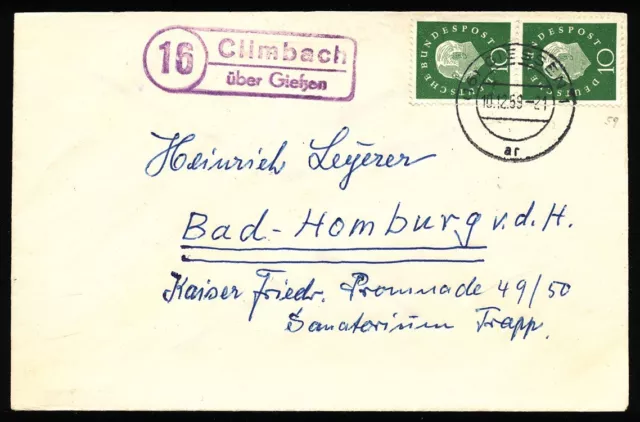 16 Climbach
über Gießen
DEUTSCHE BUNDESPOST 10
DEUTSCHE BUNDESPOST 10
GIESSEN
10.12.59-21
ar
59
Heinrich Leyerer
Bad-Homburg v. d. H.
Kaiser Friedr. Promnade 49/50
Sanatorium Trapp.